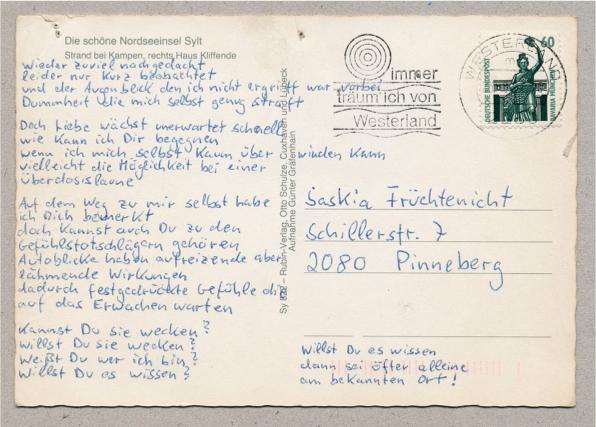 Die schöne Nordseeinsel Sylt
Strand bei Kampen, rechts Haus Kliffende
wieder zuviel nachgedacht
leider nur kurz beobachtet
und der Augenblick den ich nicht ergriff war vorbei
Dummheit die mich selbst genug straft
Doch Liebe wächst unerwartet schnell
wie kann ich Dir begegnen
wenn ich mich selbst kaum überwinden kann
vielleicht die Möglichkeit bei einer
überdosislaune
Auf dem Weg zu mir selbst habe
ich Dich bemerkt
doch kannst auch Du zu den
Gefühlstotschlägern gehören
Autoblicke haben aufreizende aber
lähmende Wirkungen
dadurch festgedrückte Gefühle die
auf das Erwachen warten
Kannst Du sie wecken?
willst Du sie wecken?
Weißt Du wer ich bin?
Willst Du es wissen?
Rubin-Verlag, Otto Schulze, Cuxhaven und Lübeck
Aufnahme Günter Gräfenhain
immer
träum' ich von
Westerland
WESTERLAND
60
DEUTSCHE BUNDESPOST
BAVARIA MÜNCHEN
Saskia Früchtenicht
Schillerstr. 7
2080 Pinneberg
Willst Du es wissen
dann sei öfter alleine
am bekannten Ort!